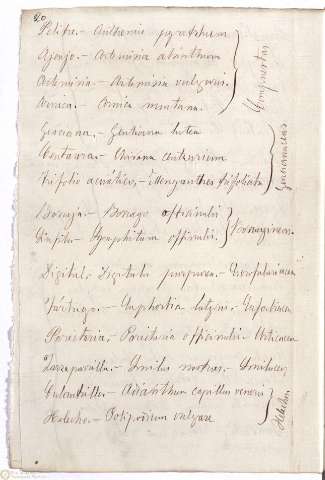 Pelitre.- Anthemis pyrethrum
Ajenjo.- Artemisia absinthium
Artemisia.- Artemisia vulgaris.
Arnica.- Arnica montana.
Compuestas
Genciana.- Gentiana lutea
Centaura.- Chironia centaurium
Trifolio acuático.- Menyanthes trifoliata
Gencianaceas
Borraja.- Borago officinalis
Sinfito.- Symphitum officinalis.
Borragineas.
Digital.- Digitalis purpurea.- Escrofulariaceas
Tártago.- Euphorbia latyris.- Euforbiaceas
Parietaria.- Parietaria officinalis.- Urticaceas
Zarzaparrilla.- Smilax medica.- Smilaceas
Culantrillo.- Adianthum capillus veneris
Helecho.- Polipodium vulgare
Helechos